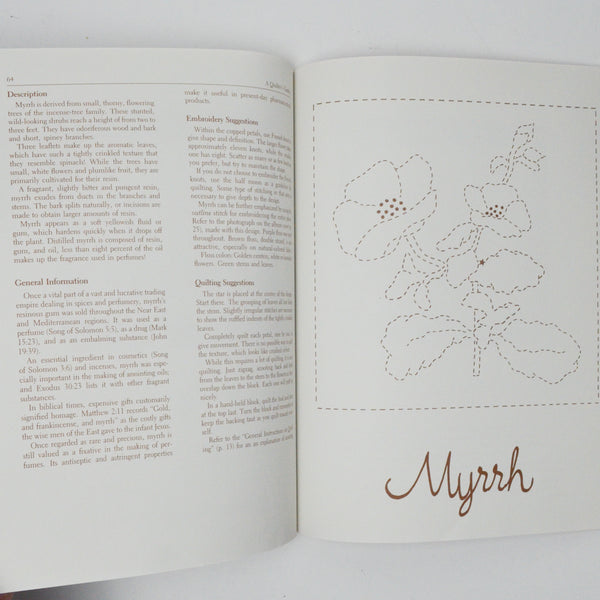 64
Description
Myrrh is derived from small, thorny, flowering
trees of the incense-tree family. These stunted,
wild-looking shrubs reach a height of from two to
three feet. They have odoriferous wood and bark
and short, spiney branches.
Three leaflets make up the aromatic leaves,
which have such a tightly crinkled texture that
they resemble spinach! While the trees have
small, white flowers and plumlike fruit, they are
primarily cultivated for their resin.
A fragrant, slightly bitter and pungent resin,
myrrh exudes from ducts in the branches and
stems. The bark splits naturally, or incisions are
made to obtain larger amounts of resin.
Myrrh appears as a soft yellowish fluid or
gum, which hardens quickly when it drops off
the plant. Distilled myrrh is composed of resin,
gum, and oil, less than eight percent of the oil
makes up the fragrance used in perfumes!
General Information
Once a vital part of a vast and lucrative trading
empire dealing in spices and perfumery, myrrh's
resinous gum was sold throughout the Near East
and Mediterranean regions. It was used as a
perfume (Song of Solomon 5:5), as a drug (Mark
15:23), and as an embalming substance (John
19:39).
An essential ingredient in cosmetics (Song
of Solomon 3:6) and incenses, myrrh was esp-
ecially important in the making of anointing oils;
and Exodus 30:23 lists it with other fragrant
substances.
In biblical times, expensive gifts customarily
signified homage. Matthew 2:11 records "Gold,
and frankincense, and myrrh" as the costly gifts
the wise men of the East gave to the infant Jesus.
Once regarded as rare and precious, myrrh is
still valued as a fixative in the making of per-
fumes. Its antiseptic and astringent properties
A Quilter's
make it useful in present-day
products.
Embroidery Suggestions
Within the cupped petals, use French
give shape and definition. The larger flower has
approximately eleven knots, while the
one has eight. Scatter as many or as few
you prefer, but try to maintain the shape.
If you do not choose to embroider the
knots, use the half moon as a guideline for
quilting. Some type of stitching in this area is
necessary to give depth to the design.
Myrrh can be further emphasized by using an
outline stitch for embroidering the entire
Refer to the photograph on the album quilt (p.
25), made with this design. Purple floss was
throughout. Brown floss, double strand, is
attractive, especially on natural-colored
Floss color: Golden centers, white
flowers. Green stems and leaves.
Quilting Suggestions
The star is placed at the center of the design.
Start there. The grouping of leaves all
the stem. Slightly irregular stitches are
to show the ruffled indents of the tightly
leaves.
Completely quilt each petal, one by one, to
give movement. There is no possible way to
the texture, which looks like crushed
While this requires a lot of quilting, it is
quilting. Just zigzag, smoothing back and
from the leaves to the stem to the flowers
overlap down the block. Each one will
nicely.
In a hand-held block, quilt the leaf and
at the top last. Turn the block and
keep the backing taut as you quilt toward
self.
Refer to the "General Instructions to Quilt-
ing" (p. 15) for an explanation of
Myrrh